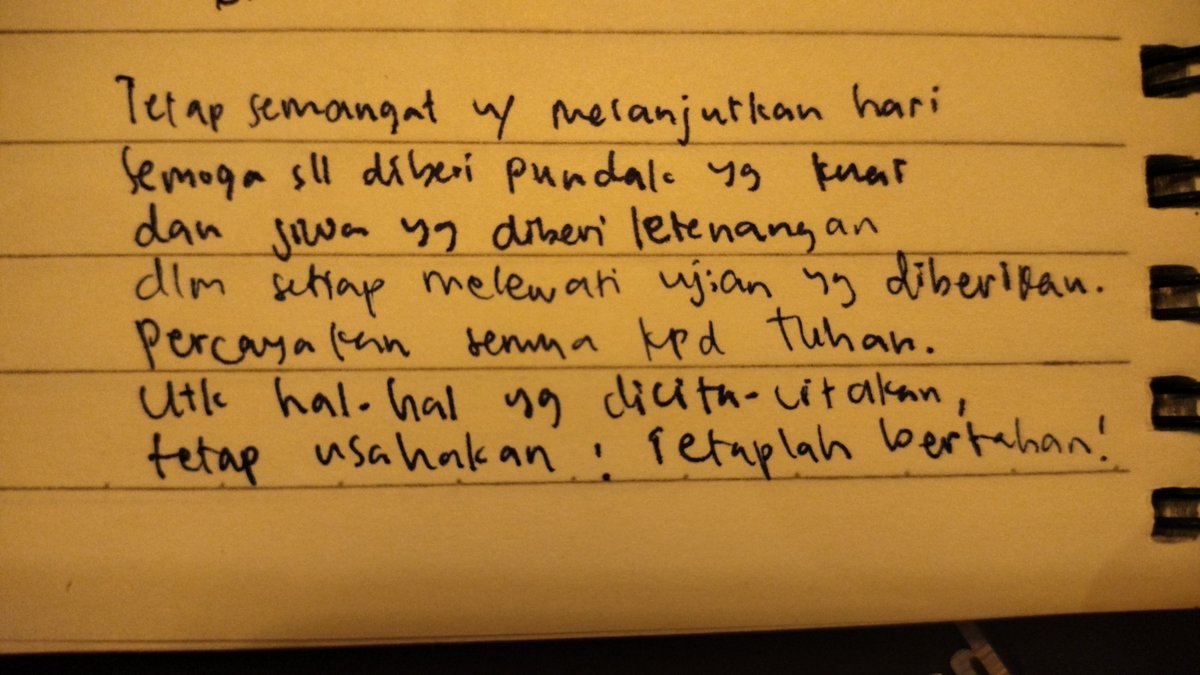 Tetap semangat u/ melanjutkan hari
Semoga sll diberi pundak yg kuat
dan jiwa yg diberi ketenangan
dlm setiap melewati ujian yg diberikan.
Percayakan semua kpd Tuhan.
Utk hal-hal yg dicita-citakan,
tetap usahakan! Tetaplah bertahan!